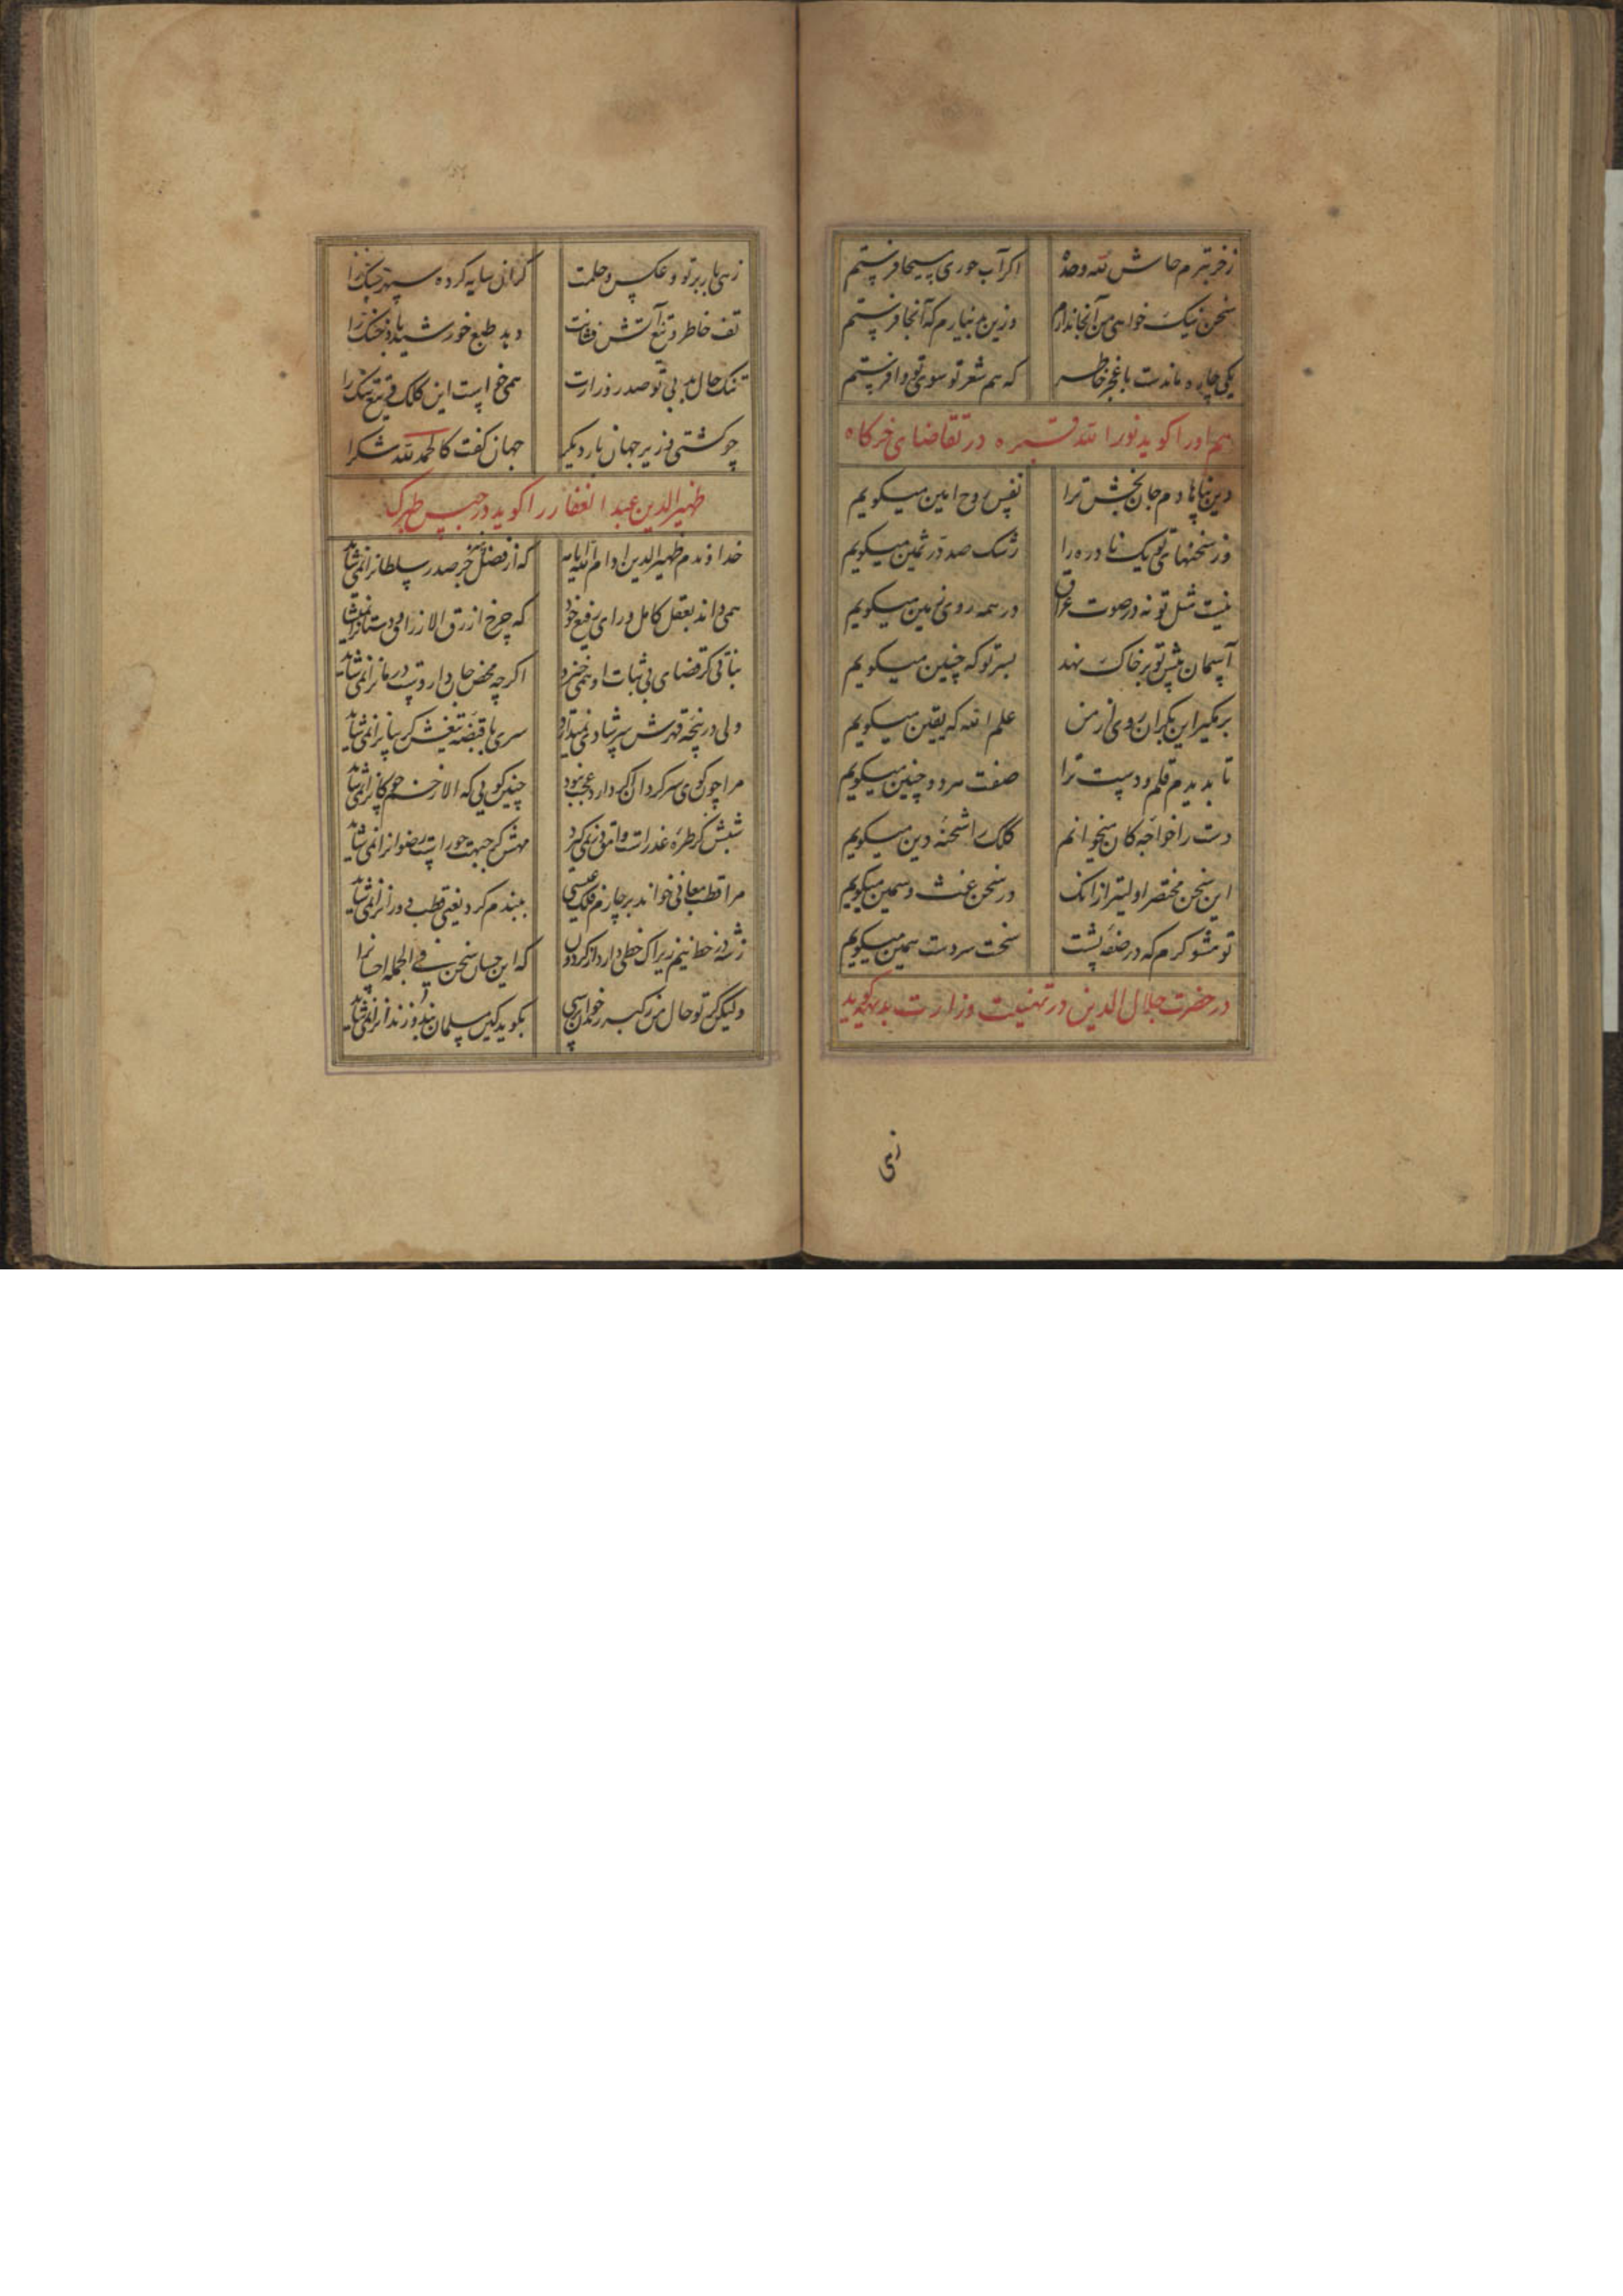 ز خر بترم حاش لله وحده اگر آب حوری بمسیحا فرستم
سخن نیک خواهی من آنجا ندارم وزین بد نیارم که آنجا فرستم
یکی چاره ماندست با عجز خاطر که هم شعر تو سوی تو وا فرستم
هم اورا کوید نور الله قبره در تقاضای خرکاه
دین پناها دم جان بخش ترا نفس روح امین میکویم
وز سخنهای تو یک نادره را رشک صد در ثمین میکویم
نیست مثل تو نه در صوت عراق در همه روی زمین میکویم
آسمان پیش تو بر خاک نهد بسر تو که جبین میکویم
برمکیر این بکران روی از من علم الله که یقین میکویم
تا بدیدم قلم و دست ترا صفت مرد و چنین میکویم
دست را خواجه کان میخوانم کلک را شحنه دین میکویم
این سخن مختصر اولیتر از آنک در سخن غث و سمین میکویم
تو مشو کرم که در صفه پشت سخت سردست همین میکویم
در حضرت جلال الدین در تهنیت وزارت بدیهه کوید
زهی
زهی بار برتو و عکس حلمت کران سایه کرده سپهر سبک را
تف خاطر و تیغ آتش فشانت دهد طبع خورشید باد خنک را
تنک حال بد بی تو صدر وزارت همی خواست این کلک و تیغ تنک را
چو کشتی وزیر جهان بار دیکر جهان کفت کالحمد لله شکرا
ظهیر الدین عبد الغفار را کوید در حبس طبرک
خداوندم ظهیر الدین ادام الله ایامه که از فضلش جز صدر سلطانرا نمی شاید
همی داند بعقل کامل و رای رفیع خود که چرخ ازرق الا زراقی و دستانرا نمیشاید
نباتی کز قضای بی ثبات او نمی خیزد اکرچه محض جان داروست درمانرا نمی شاید
ولی در پنجه قهرش سرشادی نمیتابد سری با قبضه تیغش کریبانرا نمی شاید
مرا چون کوی سرکردان اکر دارد عجب نبود چنین کویی که الا زخم چوکانرا نمی شاید
شبش کر طره عذراست وامق زو نمی کیرد مهش کر جبهت حوراست رضوانرا نمی شاید
مرا قطب معانی خواند بر چارم فلک عیسی ببندم کرد یعنی قطب دورانرا نمی شاید
ز شه در خط نیم زیراک خطی دارد از کردون که این حسان سخن فی الجمله احسانرا
ولیکن کر تو حال من رکبه خواندان پرسی بکوید کین مسلمان بند و زندانرا نمی شاید